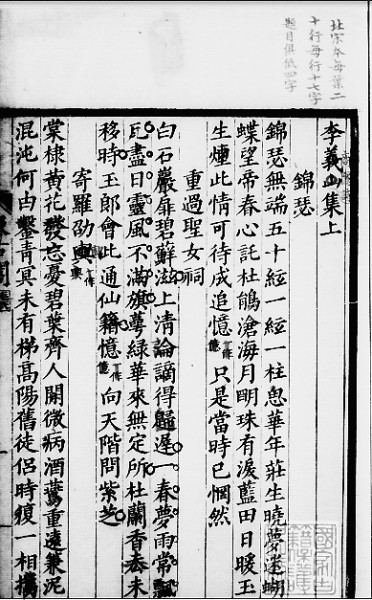 北宋本每葉二
十行每行十七字
題目俱低四字
李義山集上
錦瑟
錦瑟無端五十絃一絃一柱思華年莊生曉夢迷蝴
蝶望帝春心託杜鵑滄海月明珠有淚藍田日暖玉
生煙此情可待成追憶只是當時已惘然
重過聖女祠
白石巖扉碧蘚滋上清論謫得歸遲一春夢雨常飄
瓦盡日靈風不滿旗萼綠華來無定所杜蘭香去未
移時玉郎會此通仙籍憶一作向天階問紫芝
寄羅劭輿一作
棠棣黃花發忘憂碧葉齊人閒微病酒鷰重遠兼泥
混沌何由鑿青冥未有梯高陽舊徒侶時復一相攜